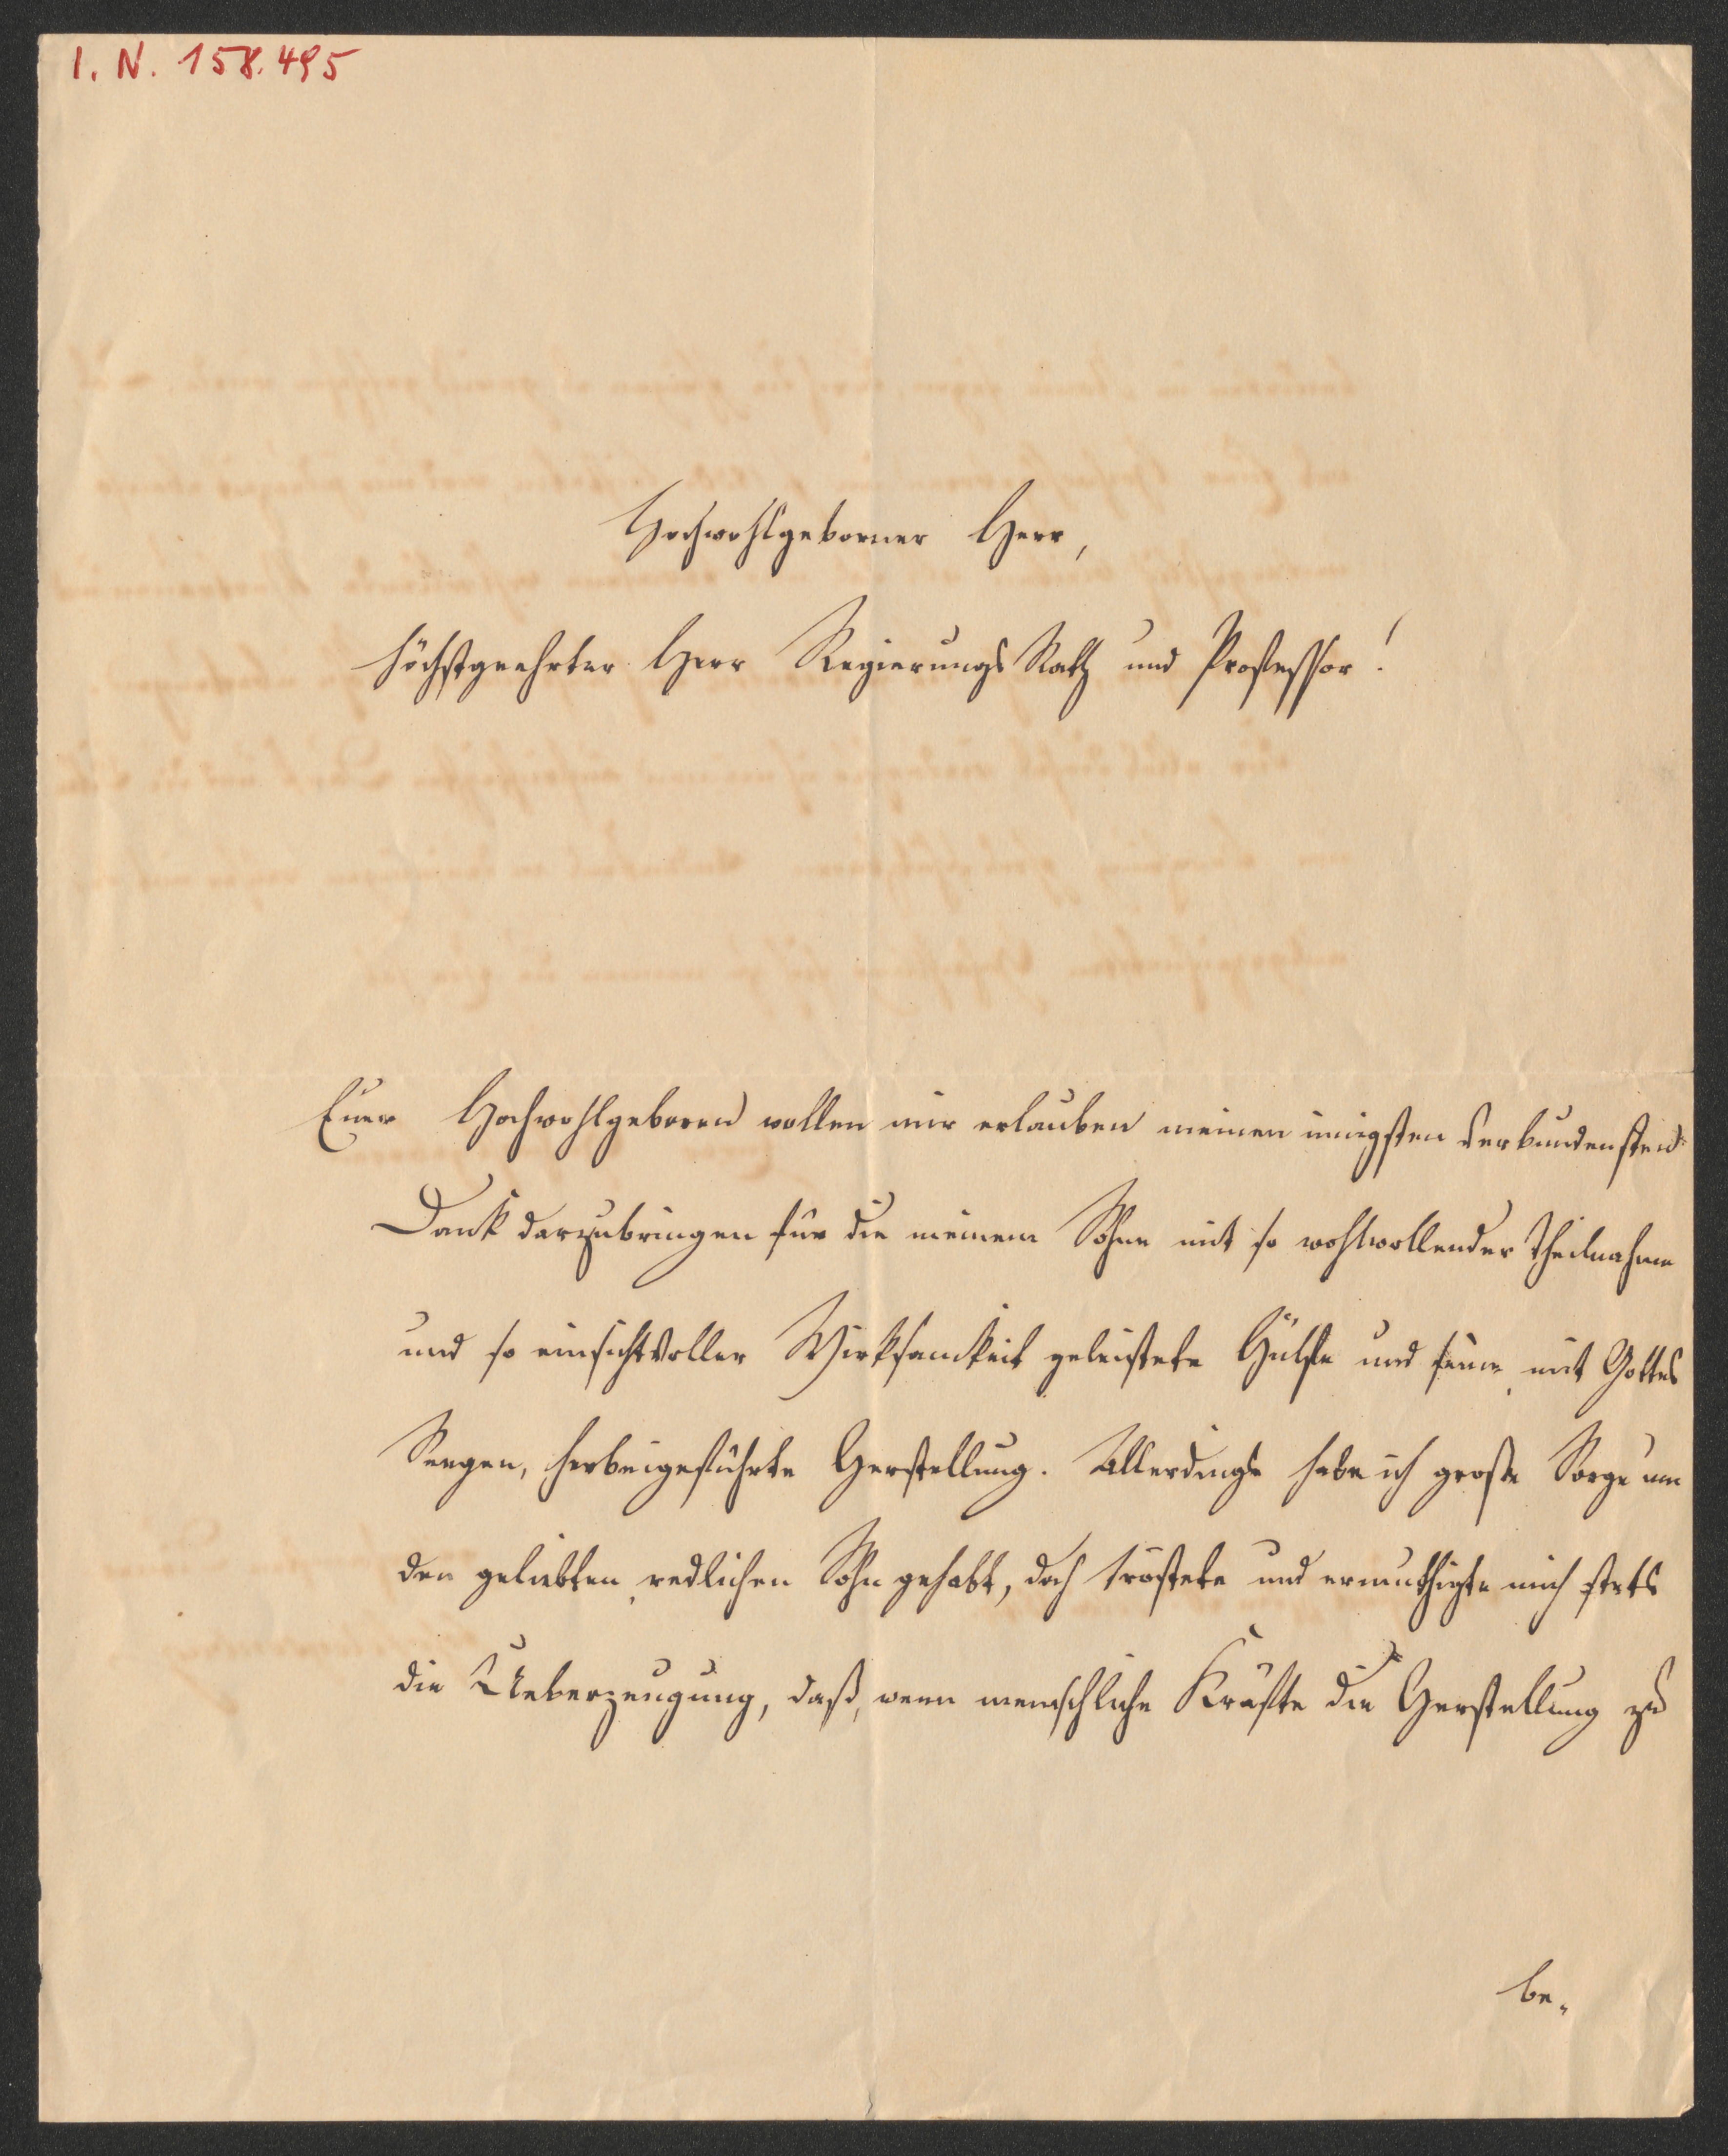 I. N. 158.495
Hochwohlgeborner Herr,
Höchstgeehrter Herr Regierungs Rath und Professor!
Euer Hochwohlgeboren wollen mir erlauben meinen innigsten verbundensten
Dank darzubringen für die meinem Sohne mit so wohlwollender Theilnahme
und so einsichtvoller Wirksamkeit geleistete Hülfe und seine, mit Gottes
Seegen, herbeigeführte Herstellung. Allerdings habe ich große Sorge um
den geliebten, redlichen Sohn gehabt, doch tröstete und ermuthigte mich stets
die Ueberzeugung, daß, wenn menschliche Kräfte die Herstellung zu
be-